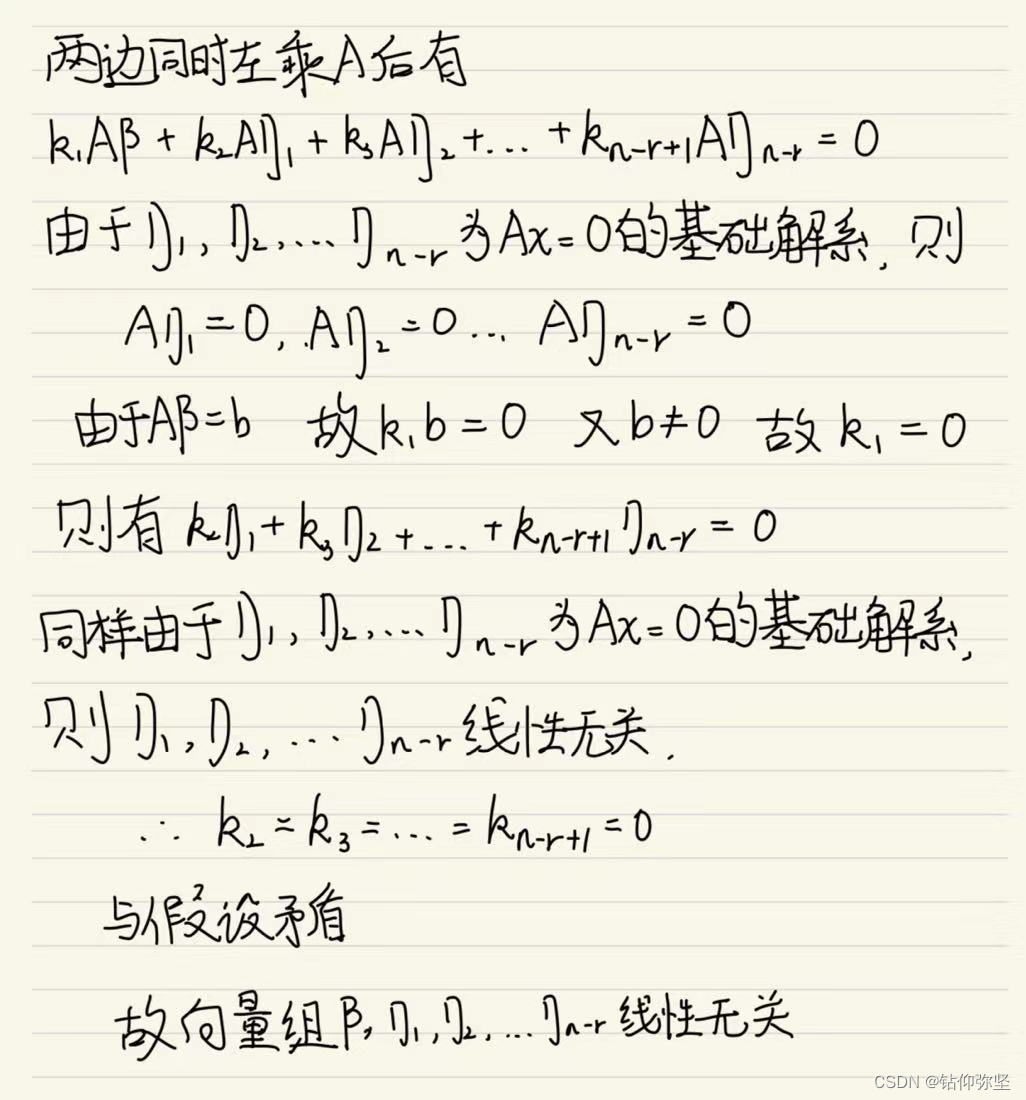 两边同时左乘A后有
k₁Aβ + k₂Aη₁ + k₃Aη₂ + ... + kₙ₋ᵣ₊₁Aηₙ₋ᵣ = 0
由于η₁, η₂, ... ηₙ₋ᵣ为Ax=0的基础解系, 则
Aη₁=0, Aη₂=0 ... Aηₙ₋ᵣ=0
由于Aβ=b 故k₁b=0 又b≠0 故k₁=0
则有 k₂η₁ + k₃η₂ + ... + kₙ₋ᵣ₊₁ηₙ₋ᵣ = 0
同样由于η₁, η₂, ... ηₙ₋ᵣ为Ax=0的基础解系,
则η₁, η₂, ... ηₙ₋ᵣ线性无关.
∴ k₂=k₃=...=kₙ₋ᵣ₊₁=0
与假设矛盾
故向量组β, η₁, η₂, ... ηₙ₋ᵣ线性无关
CSDN @钻仰弥坚